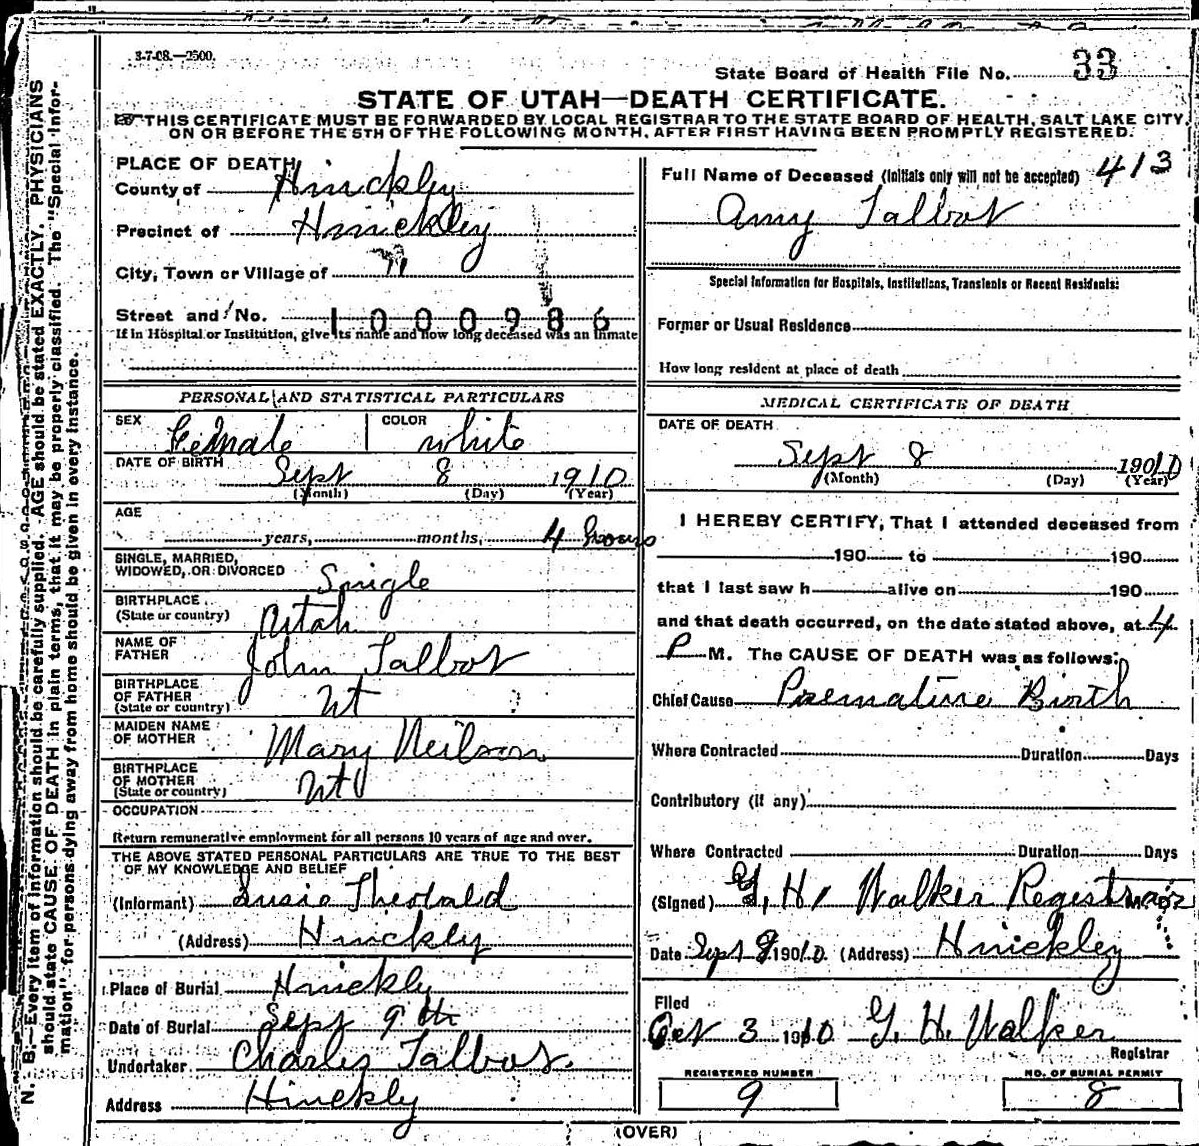 3-7-08.—2500.
State Board of Health File No. 33
STATE OF UTAH—DEATH CERTIFICATE.
THIS CERTIFICATE MUST BE FORWARDED BY LOCAL REGISTRAR TO THE STATE BOARD OF HEALTH, SALT LAKE CITY,
ON OR BEFORE THE 5TH OF THE FOLLOWING MONTH, AFTER FIRST HAVING BEEN PROMPTLY REGISTERED.
N. B.—Every item of information should be carefully supplied. AGE should be stated EXACTLY. PHYSICIANS
should state CAUSE OF DEATH in plain terms, that it may be properly classified. The "Special Infor-
mation" for persons dying away from home should be given in every instance.
PLACE OF DEATH
County of Hinckley
Precinct of Hinckley
City, Town or Village of "
Street and No. 1000986
If in Hospital or Institution, give its name and how long deceased was an inmate
PERSONAL AND STATISTICAL PARTICULARS
SEX Female COLOR white
DATE OF BIRTH Sept 8 1910
(Month) (Day) (Year)
AGE
years, months, 4 hours
SINGLE, MARRIED,
WIDOWED, OR DIVORCED Single
BIRTHPLACE
(State or country) Utah
NAME OF
FATHER John Talbot
BIRTHPLACE
OF FATHER
(State or country) Ut
MAIDEN NAME
OF MOTHER Mary Neilson
BIRTHPLACE
OF MOTHER
(State or country) Ut
OCCUPATION
Return remunerative employment for all persons 10 years of age and over.
THE ABOVE STATED PERSONAL PARTICULARS ARE TRUE TO THE BEST
OF MY KNOWLEDGE AND BELIEF
(Informant) Susie Theobald
(Address) Hinckley
Place of Burial Hinckley
Date of Burial Sept 9th
Undertaker Charles Talbot.
Address Hinckley
Full Name of Deceased (Initials only will not be accepted) 413
Amy Talbot
Special Information for Hospitals, Institutions, Transients or Recent Residents:
Former or Usual Residence
How long resident at place of death
MEDICAL CERTIFICATE OF DEATH
DATE OF DEATH
Sept 8 1910
(Month) (Day) (Year)
I HEREBY CERTIFY, That I attended deceased from
190 to 190
that I last saw h alive on 190
and that death occurred, on the date stated above, at 4
P M. The CAUSE OF DEATH was as follows:
Chief Cause Premature Birth
Where Contracted Duration Days
Contributory (if any)
Where Contracted Duration Days
(Signed) G. H. Walker Registrar
Date Sept 9 1910 (Address) Hinckley
Filed
Oct 3 1910 G. H. Walker
Registrar
REGISTERED NUMBER NO. OF BURIAL PERMIT
9 8
(OVER)